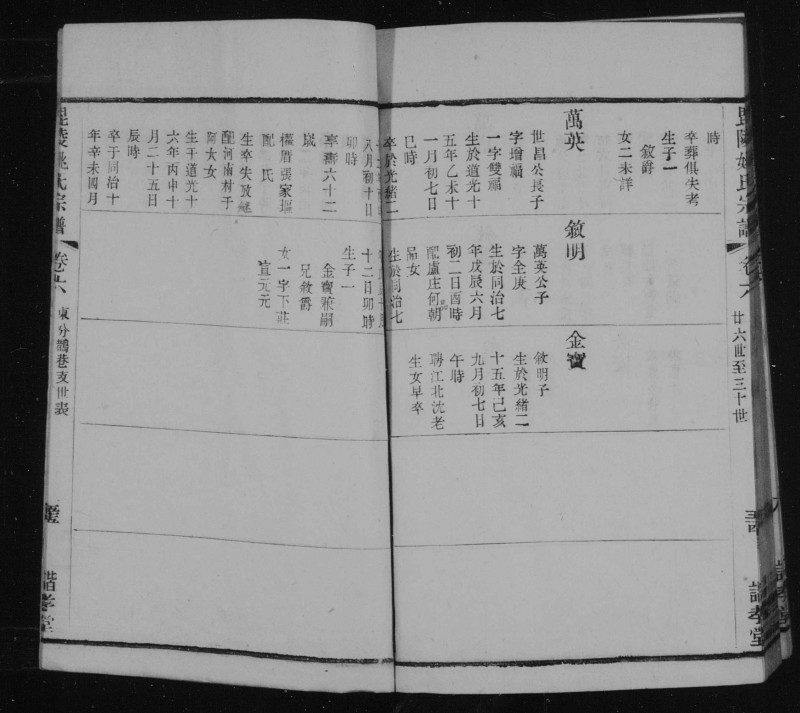 毘陵姚氏宗譜
卷六
廿六世至三十世
諧孝堂
時
卒葬俱失考
生子一
敘爵
女二未詳
萬英
世昌公長子
字增福
一字雙福
生於道光十
五年乙未十
一月初七日
巳時
卒於光緒二
八月初十日
卯時
享壽六十二
歲
權厝張家塸
配 氏
生卒失攷繼
配河南村子
阿大女
生于道光十
六年丙申十
月二十五日
辰時
卒于同治十
年辛未四月
敘明
萬英公子
字全庚
生於同治七
年戊辰六月
初二日酉時
配盧庄何朝
品女
生於同治七
十二日卯時
生子一
金寶兼嗣
兄敘爵
女一字下莊
宣元元
金寶
敘明子
生於光緒二
十五年己亥
九月初七日
午時
聘江北沈老
生女早卒
毘陵姚氏宗譜
卷六
東分鵲巷支世表
諧孝堂